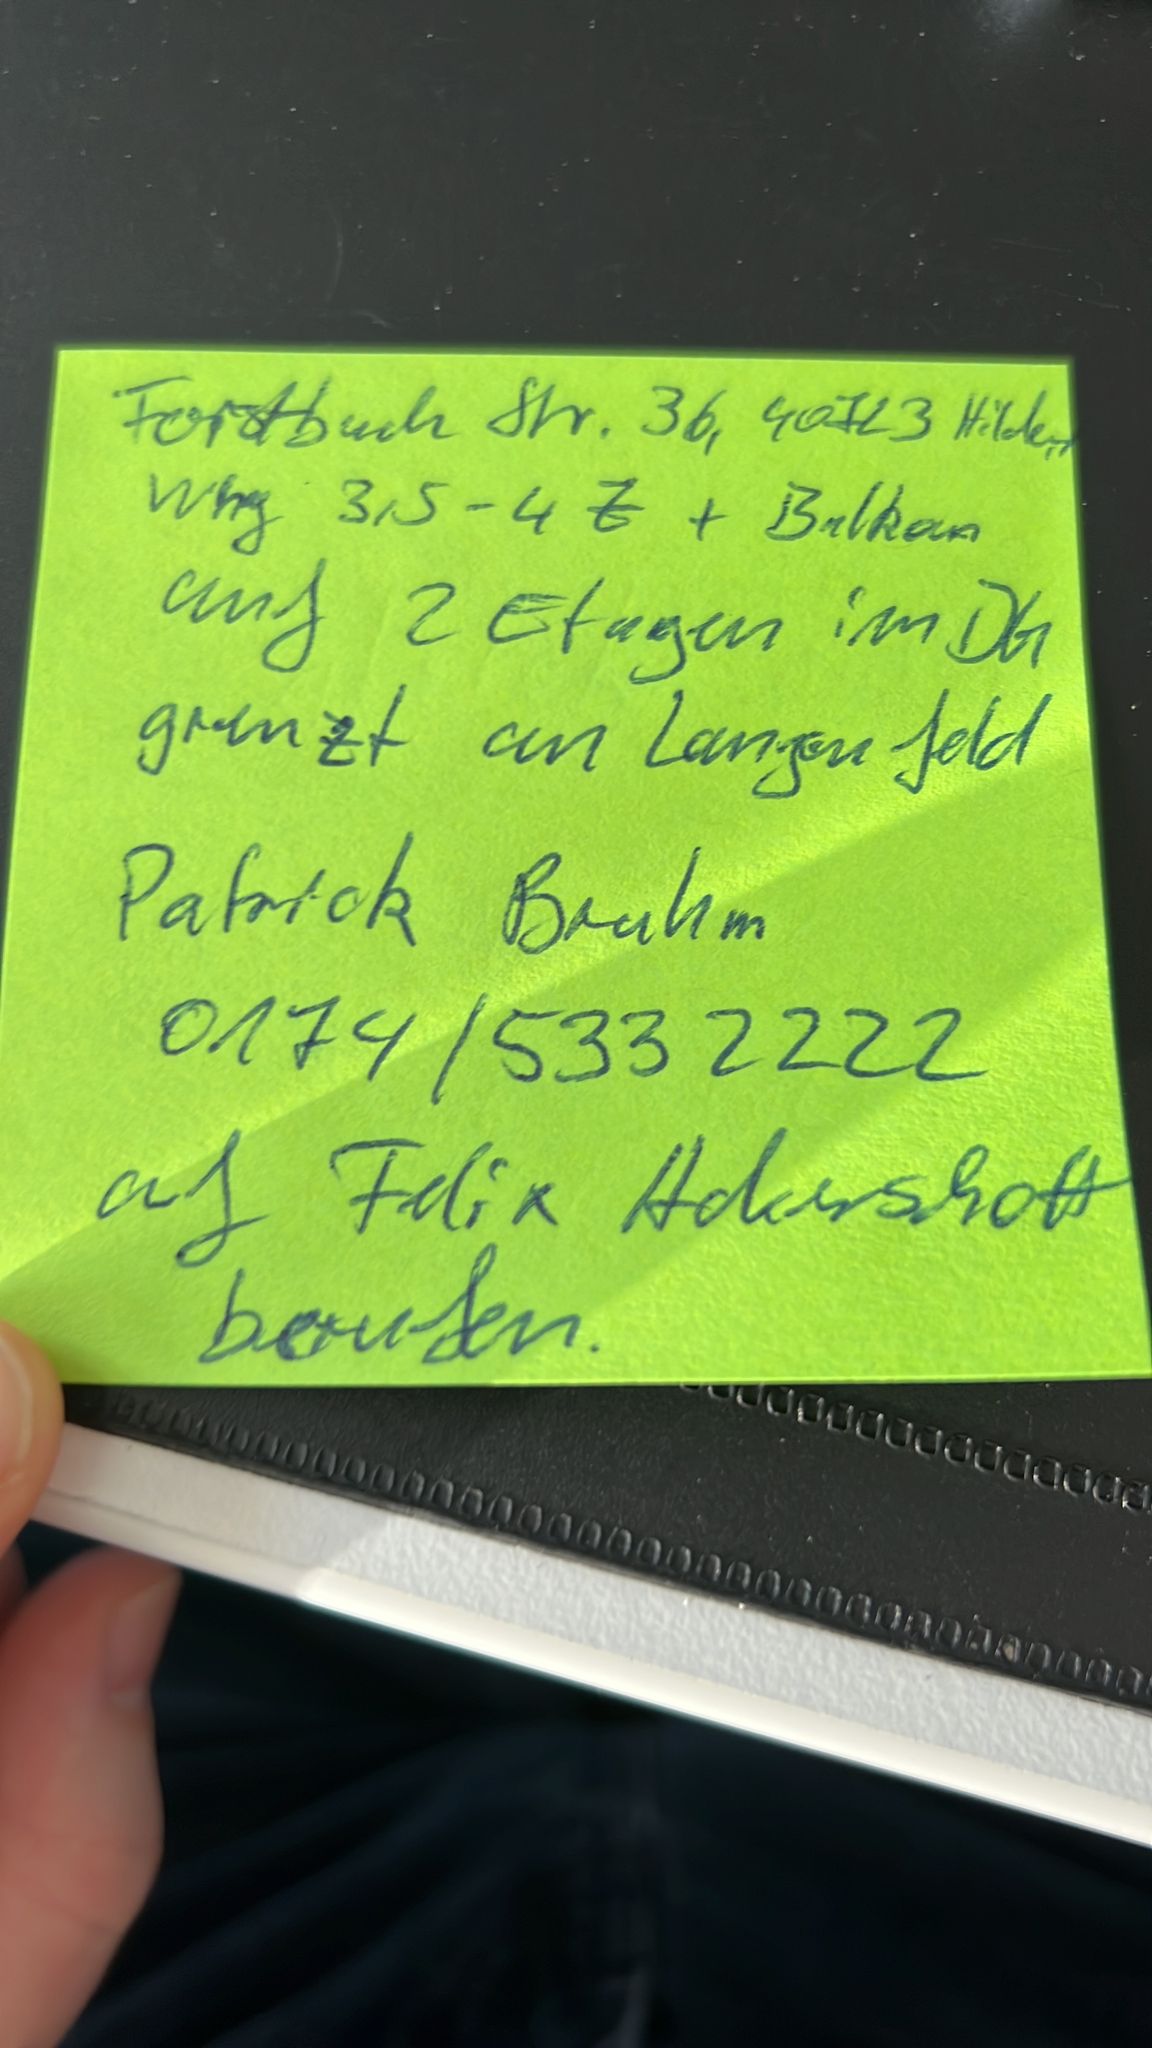 Forstbach Str. 36, 40723 Hilden
Whg 3,5-4 Z + Balkon
auf 2 Etagen im DG
grenzt an Langenfeld
Patrick Bruhm
0174/5332222
auf Felix Ackerschott
berufen.